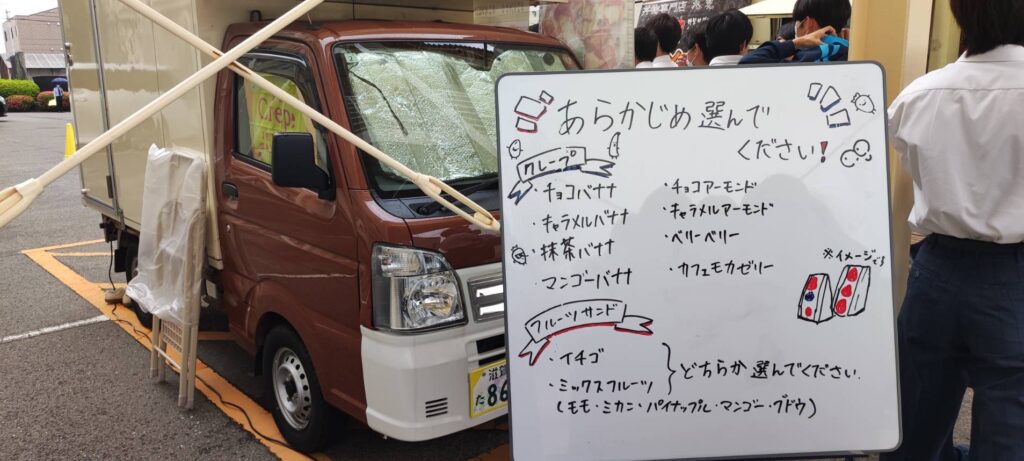 あらかじめ選んで
ください!
クレープ
・チョコバナナ
・キャラメルバナナ
・抹茶バナナ
・マンゴーバナナ
・チョコアーモンド
・キャラメルアーモンド
・ベリーベリー
・カフェモカゼリー
※イメージです
フルーツサンド
・イチゴ
・ミックスフルーツ
(モモ・ミカン・パイナップル・マンゴー・ブドウ)
どちらか選んでください.
Crepe
滋賀
た 86